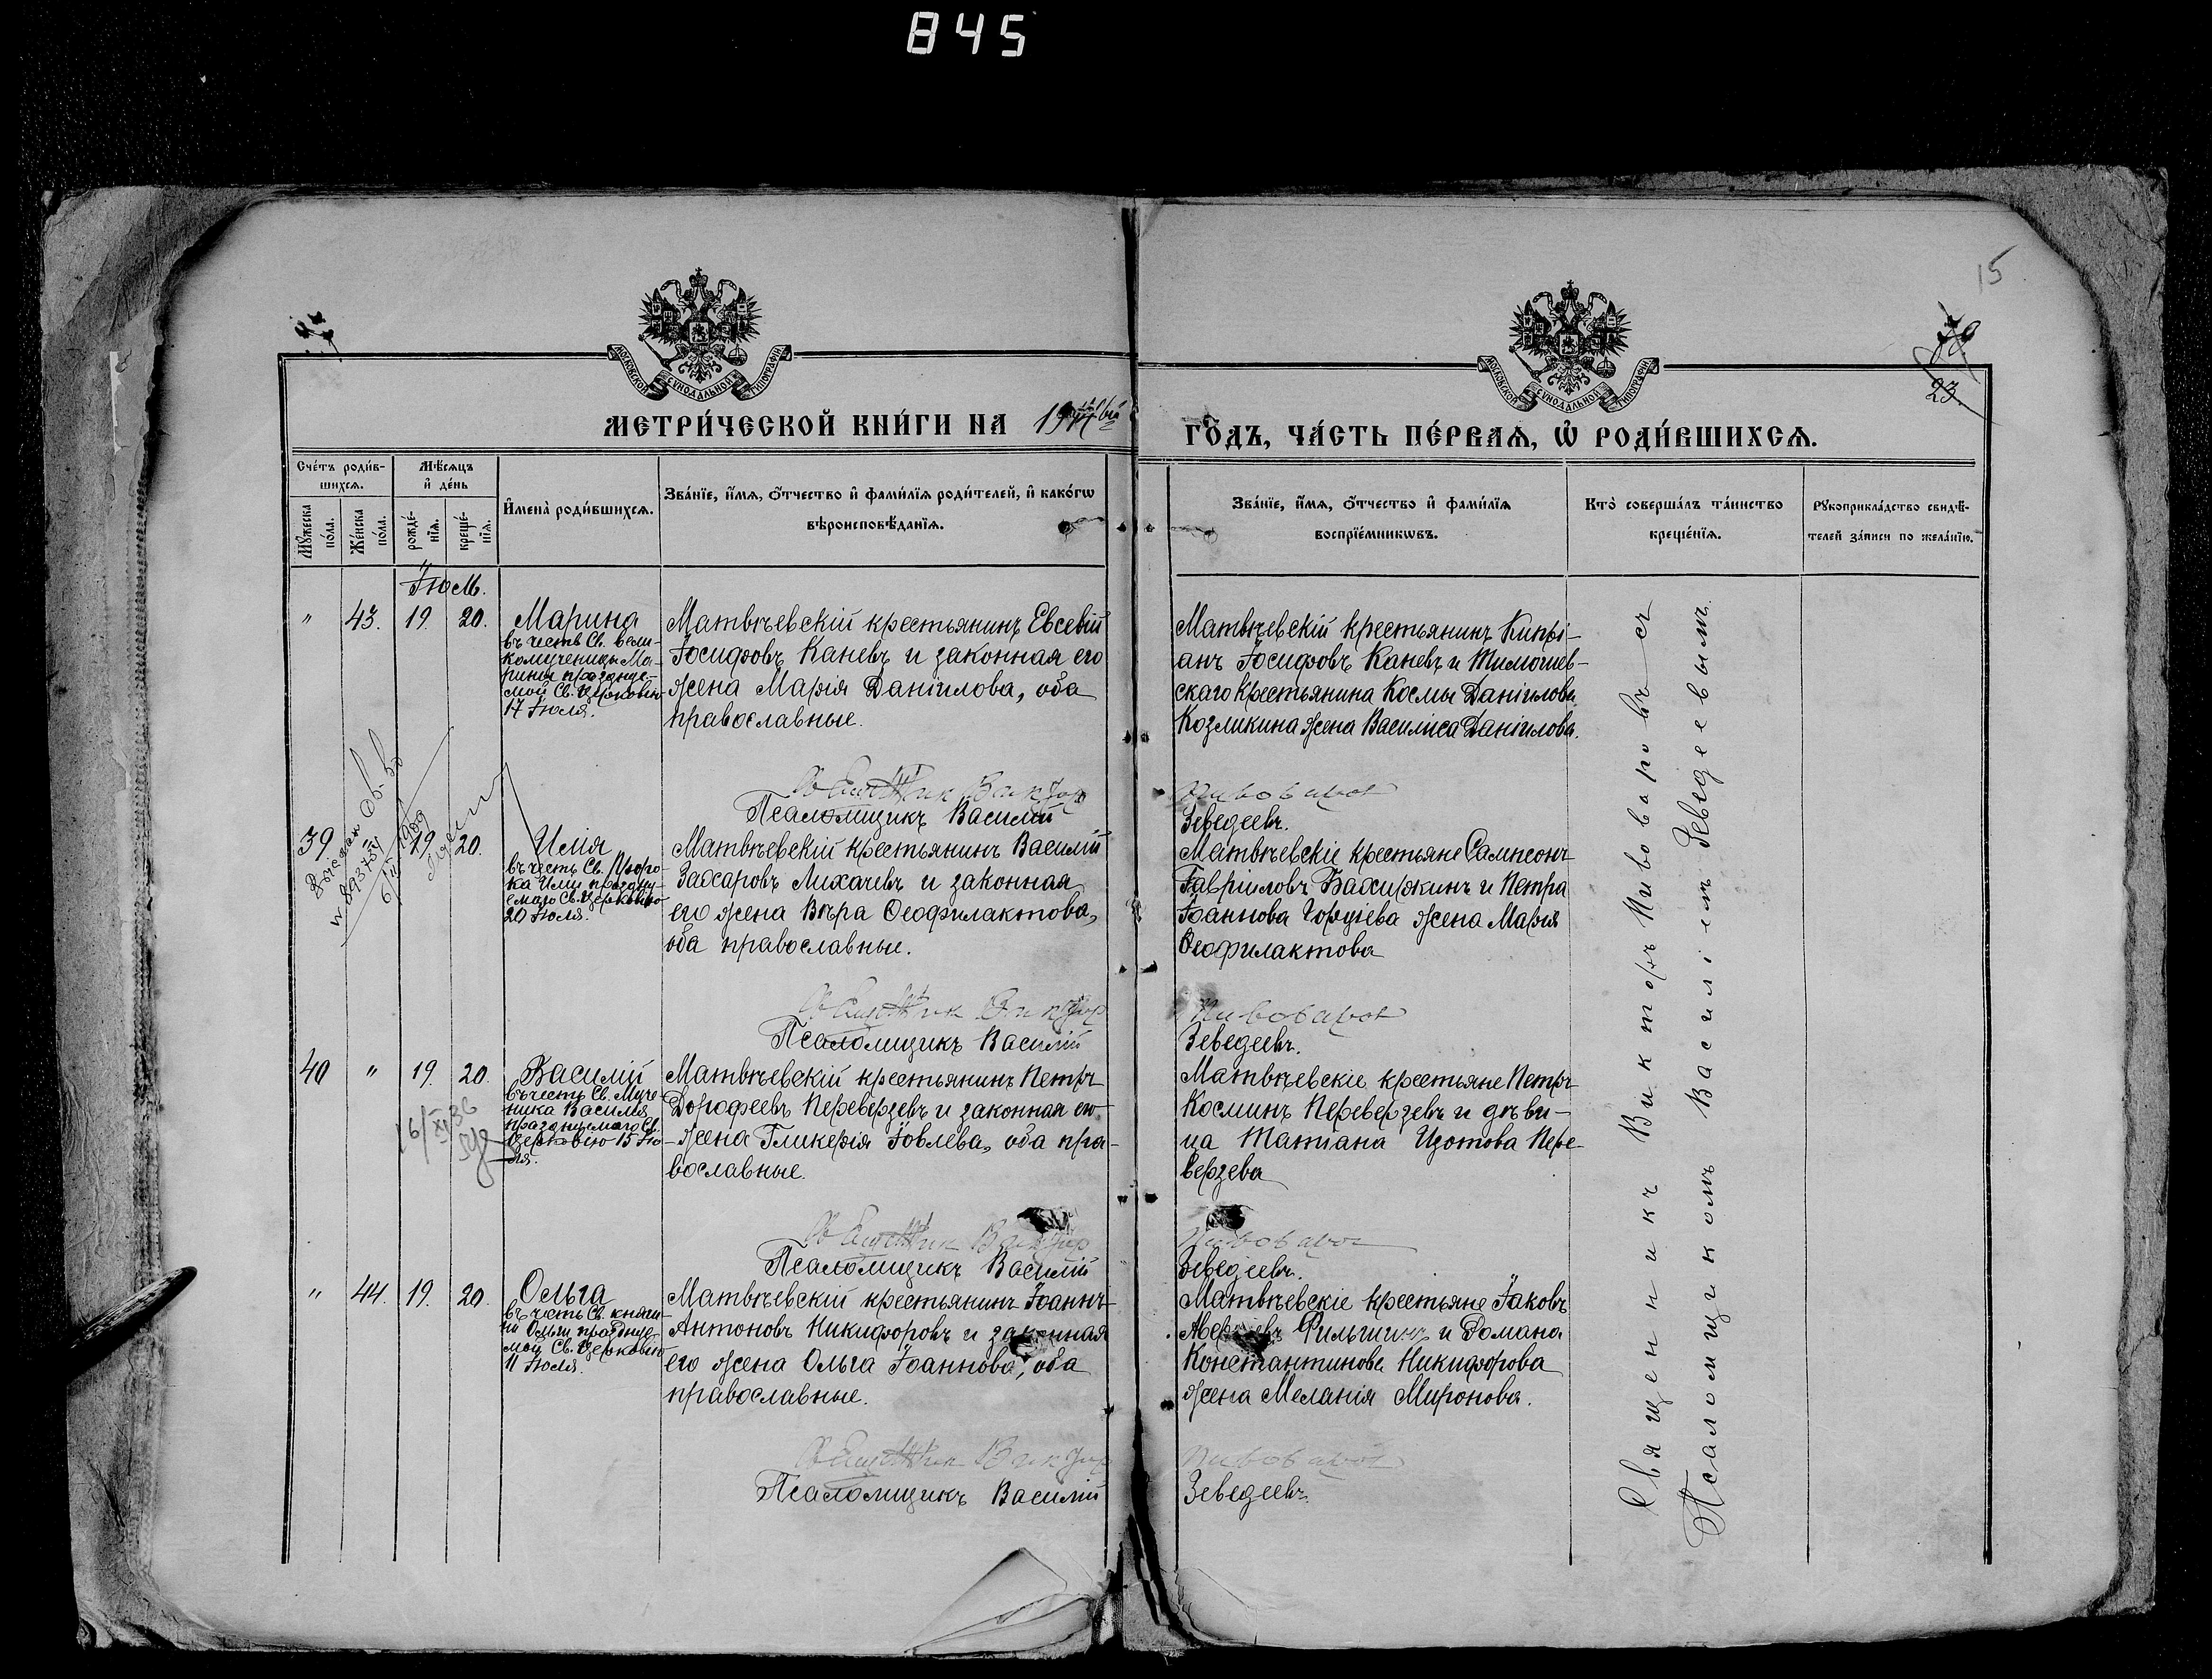 845
15
23.
МОСКОВСКОЙ СУНОДАЛЬНОЙ ТИПОГРАФІИ
МОСКОВСКОЙ СУНОДАЛЬНОЙ ТИПОГРАФІИ
МЕТРИ́ЧЕСКОЙ КНИ́ГИ НА
ГО́ДЪ, ЧА́СТЬ ПЕ́РВАѦ, Ѽ РОДИ́ВШИХСѦ.
Сче́тъ роди́в-
шихсѧ.
Мѣ́сѧцъ
и҆ де́нь
Мꙋ́жеска по́ла.
Же́нска по́ла.
рожде́-
нїѧ.
креще́-
нїѧ.
И҆мена̀ роди́вшихсѧ.
Зва́нїе, и҆́мѧ, ѻ҆́тчество и҆ фами́лїѧ роди́телей, и҆ како́гѡ
вѣроисповѣ́данїѧ.
Зва́нїе, и҆́мѧ, ѻ҆́тчество и҆ фами́лїѧ
воспрїе́мникѡвъ.
Кто̀ соверша́лъ та́инство
креще́нїѧ.
Рꙋкоприкла́дство свидѣ́-
телей за́писи по жела́нїю.
Іюль.
" 43. 19. 20. Марина
въ честь Св. вели-
комученицы Ма-
рины празднуе-
мой Св. Церковію
17 Іюля.
Матвѣевскій крестьянинъ Евсевій
Іосифовъ Каневъ и законная его
жена Марія Даніилова, оба
православные.
Матвѣевскій крестьянинъ Кипрі-
анъ Іосифовъ Каневъ и Тимошев-
скаго крестьянина Космы Даніилова
Козликина жена Василиса Даніилова.
Псаломщикъ Василій
Зеведеевъ.
39 " 19. 20. Илія
въ честь Св. Проро-
ка Иліи праздну-
емаго Св. Церковію
20 Іюля.
Матвѣевскій крестьянинъ Василій
Захаровъ Лихачевъ и законная
его жена Вѣра Ѳеофилактова,
оба православные.
Матвѣевскіе крестьяне Сампсонъ
Гавріиловъ Бахиркинъ и Петра
Іоаннова Гордіева жена Марія
Ѳеофилактова
Псаломщикъ Василій
Зеведеевъ.
40 " 19. 20. Василій
въ честь Св. Муче-
ника Василія
празднуемаго Св.
Церковію 15 Ію-
ля.
Матвѣевскій крестьянинъ Петръ
Дорофеевъ Переверзевъ и законная его
жена Гликерія Іовлева, оба пра-
вославные.
Матвѣевскіе крестьяне Петръ
Косминъ Переверзевъ и дѣви-
ца Татіана Изотова Пере-
верзева
Псаломщикъ Василій
Зеведеевъ.
" 44. 19. 20. Ольга
въ честь Св. княги-
ни Ольги празднуе-
мой Св. Церковію
11 Іюля.
Матвѣевскій крестьянинъ Іоаннъ
Антоновъ Никифоровъ и законная
его жена Ольга Іоаннова, оба
православные.
Матвѣевскіе крестьяне Іаковъ
Фильшинъ и Романа
Константинова Никифорова
жена Меланія Миронова.
Псаломщикъ Василій
Зеведеевъ.
Священникъ Викторъ Пивоваровъ съ
Псаломщикомъ Василіемъ Зеведеевымъ.